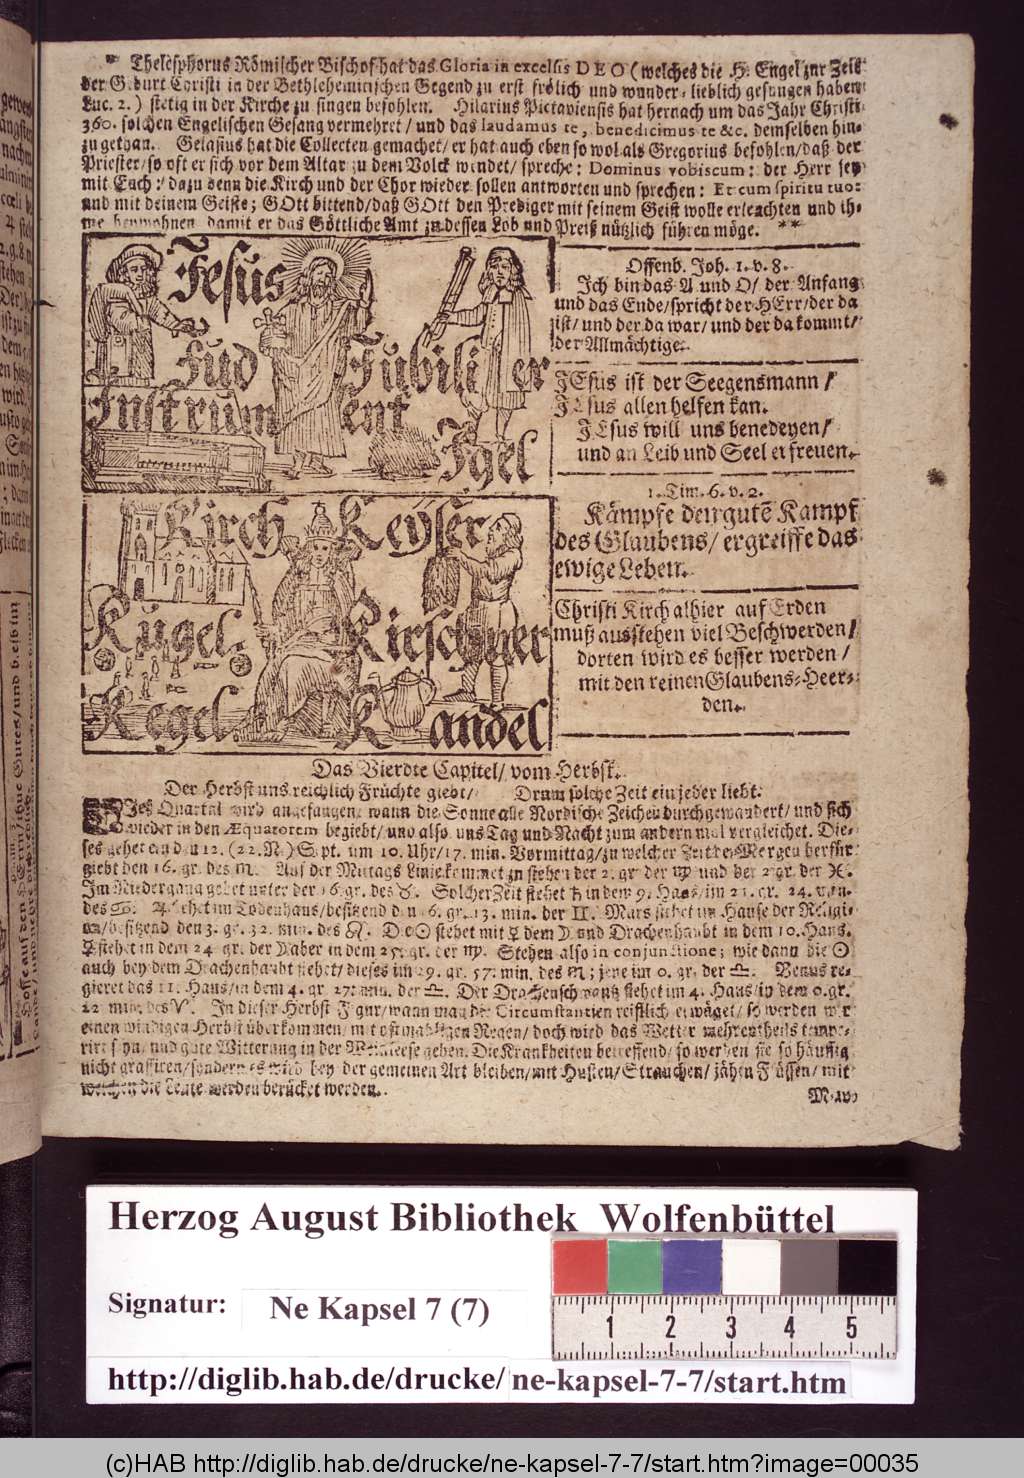 Thelesphorus Römischer Bischof hat das Gloria in excelsis DEO (welches die H. Engel zur Zeit
der Geburt Christi in der Bethlehemitischen Gegend zu erst frölich und wunder-lieblich gesungen haben
Luc. 2.) stetig in der Kirche zu singen befohlen. Hilarius Pictaviensis hat hernach um das Jahr Christi
360. solchen Engelischen Gesang vermehret/ und das laudamus te, benedicimus te &c. demselben hin-
zu gethan. Gelasius hat die Collecten gemachet/ er hat auch eben so wol als Gregorius befohlen/ daß der
Priester/ so oft er sich vor dem Altar zu dem Volck wendet/ spreche: Dominus vobiscum: der Herr sey
mit Euch: dazu denn die Kirch und der Chor wieder sollen antworten und sprechen: Et cum spiritu tuo:
und mit deinem Geiste; GOtt bittend/ daß GOtt den Prediger mit seinem Geist wolle erleuchten und ih-
me beywohnen, damit er das Göttliche Amt zu dessen Lob und Preiß nützlich führen möge. **
Jesus
Jud Jubilier
Instrument
Igel
Offenb. Joh. 1. v. 8.
Ich bin das A und O/ der Anfang
und das Ende/ spricht der HErr/ der da
ist/ und der da war/ und der da kommt/
der Allmächtige.
JEsus ist der Seegensmann/
JEsus allen helfen kan.
JEsus will uns benedeyen/
und an Leib und Seel erfreuen.
Kirch Keyser
Kugel Kirschner
Kegel Kandel
1. Tim. 6. v. 2.
Kämpfe den gutē Kampf
des Glaubens/ ergreiffe das
ewige Leben.
Christi Kirch alhier auf Erden
muß ausstehen viel Beschwerden/
dorten wird es besser werden/
mit den reinen Glaubens-Heer-
den.
Das Vierdte Capitel/ vom Herbst.
Der Herbst uns reichlich Früchte giebt/ Drum solche Zeit ein jeder liebt.
DIes Quartal wird angefangen wann die Sonne alle Nordische Zeichen durchgewandert/ und sich
wieder in den Æquatorem begiebt/ und also uns Tag und Nacht zum andern mal vergleichet. Die-
ses gehet an den 12. (22. N.) Sept. um 10. Uhr/ 17. min. Vormittag/ zu welcher Zeit der Morgen
ziebt den 16. gr. des ♏. Auf der Mittags Linie kommet zu stehen der 2. gr. der ♍ und der 2 gr. der ♓.
Im Niedergang gehet unter der 16 gr. des ♉. Solcher Zeit stehet ♄ in dem 9. Haus/ im 21. gr. 24. min.
des ♋. ♃ stehet im Todenhaus/ besitzend den 6. gr. 13. min. der ♊. Mars stehet im Hause der Religi-
on/ besitzend den 3. gr. 32. min. des ♌. Die ☉ stehet mit ☿ dem ☽ und Drachenhaubt in dem 10. Haus.
☿ stehet in dem 24 gr. der ☽ aber in dem 25. gr. der ♍. Stehen also in conjunctione; wie dann die ☉
auch bey dem Drachenhaubt stehet/ dieses im 29. gr. 57. min. des ♍; jene im 0. gr. der ♎. Venus re-
gieret das 11. Haus/ in dem 4. gr. 27. min. der ♎. Der Drachenschwantz stehet im 4. Haus/ in dem 0. gr.
22 min. des ♈. In dieser Herbst Figur/ wann man die Circumstantien reiflich erwäget/ so werden wir
einen windigen Herbst überkommen/ mit oftmahligen Regen/ doch wird das Wetter mehrentheils tempe-
rirt seyn/ und gute Witterung in der Weinleese geben. Die Kranckheiten betreffend/ so werden sie so häuffig
nicht grassiren/ sondern es wird bey der gemeinen Art bleiben/ mit Husten/ Strauchen/ jähen Flüssen/ mit
welchen die Leute werden berücket werden.
Herzog August Bibliothek Wolfenbüttel
Signatur: Ne Kapsel 7 (7)
1 2 3 4 5
http://diglib.hab.de/drucke/ne-kapsel-7-7/start.htm
(c)HAB http://diglib.hab.de/drucke/ne-kapsel-7-7/start.htm?image=00035